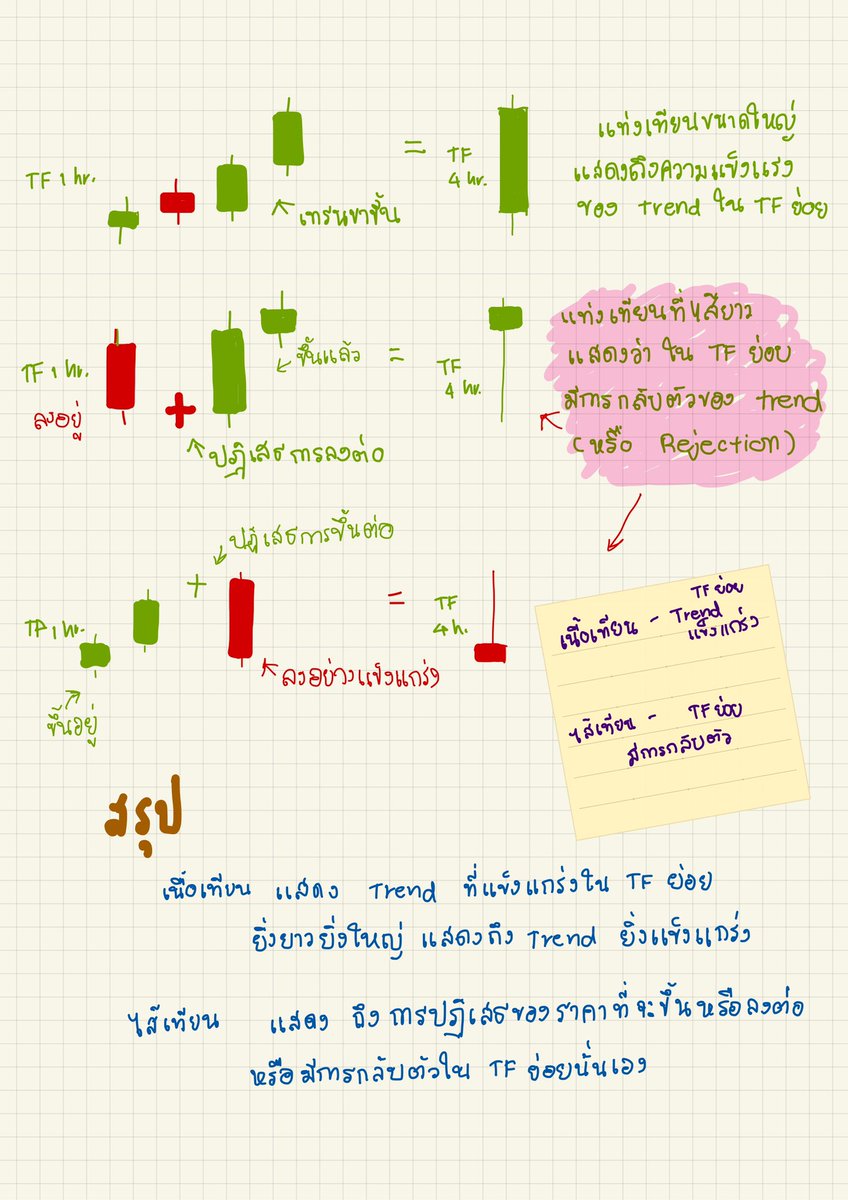 TF 1 hr.
เทรนขาขึ้น
=
TF
4 hr.
แท่งเทียนขนาดใหญ่
แสดงถึงความแข็งแรง
ของ Trend ใน TF ย่อย
TF 1 hr.
ลงอยู่
+
ขึ้นแล้ว
ปฏิเสธการลงต่อ
=
TF
4 hr.
แท่งเทียนที่ไส้ยาว
แสดงว่า ใน TF ย่อย
มีการกลับตัวของ trend
(หรือ Rejection)
ปฏิเสธการขึ้นต่อ
+
TF 1 hr.
ขึ้นอยู่
ลงอย่างแข็งแกร่ง
=
TF
4 h.
เนื้อเทียน - TF ย่อย
Trend
แข็งแกร่ง
ไส้เทียน - TF ย่อย
มีการกลับตัว
สรุป
เนื้อเทียน แสดง Trend ที่แข็งแกร่งใน TF ย่อย
ยิ่งยาวยิ่งใหญ่ แสดงถึง Trend ยิ่งแข็งแกร่ง
ไส้เทียน แสดง ถึงการปฏิเสธของราคาที่จะขึ้นหรือลงต่อ
หรือมีการกลับตัวใน TF ย่อยนั่นเอง